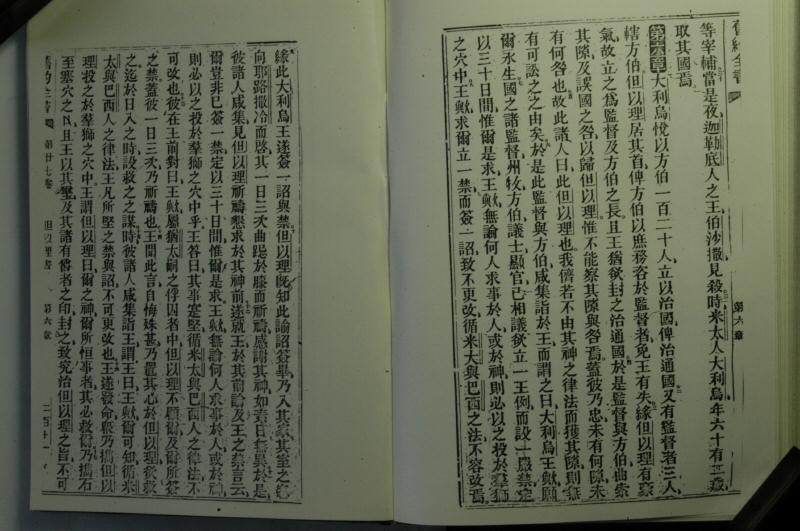 舊約全書
第六章
等宰輔當是夜迦勒底人之王伯沙撒見殺時米太人大利烏年六十有二歲
取其國焉
第六章大利烏悅以方伯一百二十人立以治國俾治通國又有監督者三人
轄方伯但以理居其首俾方伯以庶務咨於監督者免王有失緣但以理有
氣故立之爲監督及方伯之長且王猶欲封之治通國於是監督與方伯曲索
其隙及誤國之咎以歸但以理惟不能察其隙與咎焉蓋彼乃忠未有何隙未
有何咎也故此諸人曰此但以理也我儕若不由其神之律法而獲其隙則無
有可訟之之由矣於是此監督與方伯咸集詣於王而謂之曰大利烏王歟願
爾永生國之諸監督州牧方伯議士顯官已相議欲立一王例而設一嚴禁定
以三十日間惟爾是求王歟無論何人求事於人或於神則必以之投於羣獅
之穴中王歟求爾立一禁而簽一詔致不更改循米大與巴西之法不容改焉
緣此大利烏王遂簽一詔與禁但以理旣知此諭詔簽畢乃入其家其室之
向耶路撒冷而啓其一日三次曲跽於膝而祈禱感謝其神如素日無異於是
彼諸人咸集見但以理祈禱懇求於其神前遂就王於其前論及王之禁言云
爾豈非已簽一禁定以三十日間惟爾是求王歟無論何人求事於人或於神
則必以之投於羣獅之穴中乎王答曰其事定堅循米太與巴西人之律法不
可改也彼在王前對曰王歟屬猶太嗣之俘囚者中但以理不顧爾及爾所簽
之禁蓋彼一日三次乃祈禱也王聞此言自悔殊甚乃置其心於但以理欲救
之迄於日入之時設救之之謀時彼諸人咸集詣王謂王曰王歟爾可知循米
太與巴西人之律法王凡所堅之禁與詔不可更改也王遂發命衆乃攜但以
理投之於羣獅之穴中王謂但以理曰爾之神爾所恒事者其必救爾乃攜石
至塞穴之口且王以其璽及其諸有爵者之印封之致究治但以理之旨不可
舊約全書
第廿七卷
但以理書
第六章
二百廿一